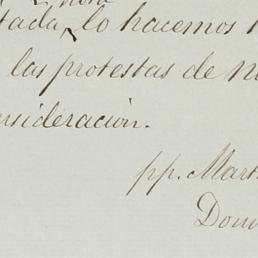 tada, lo hacemos
las protestas de
consideración.
pp. Mart
Dom